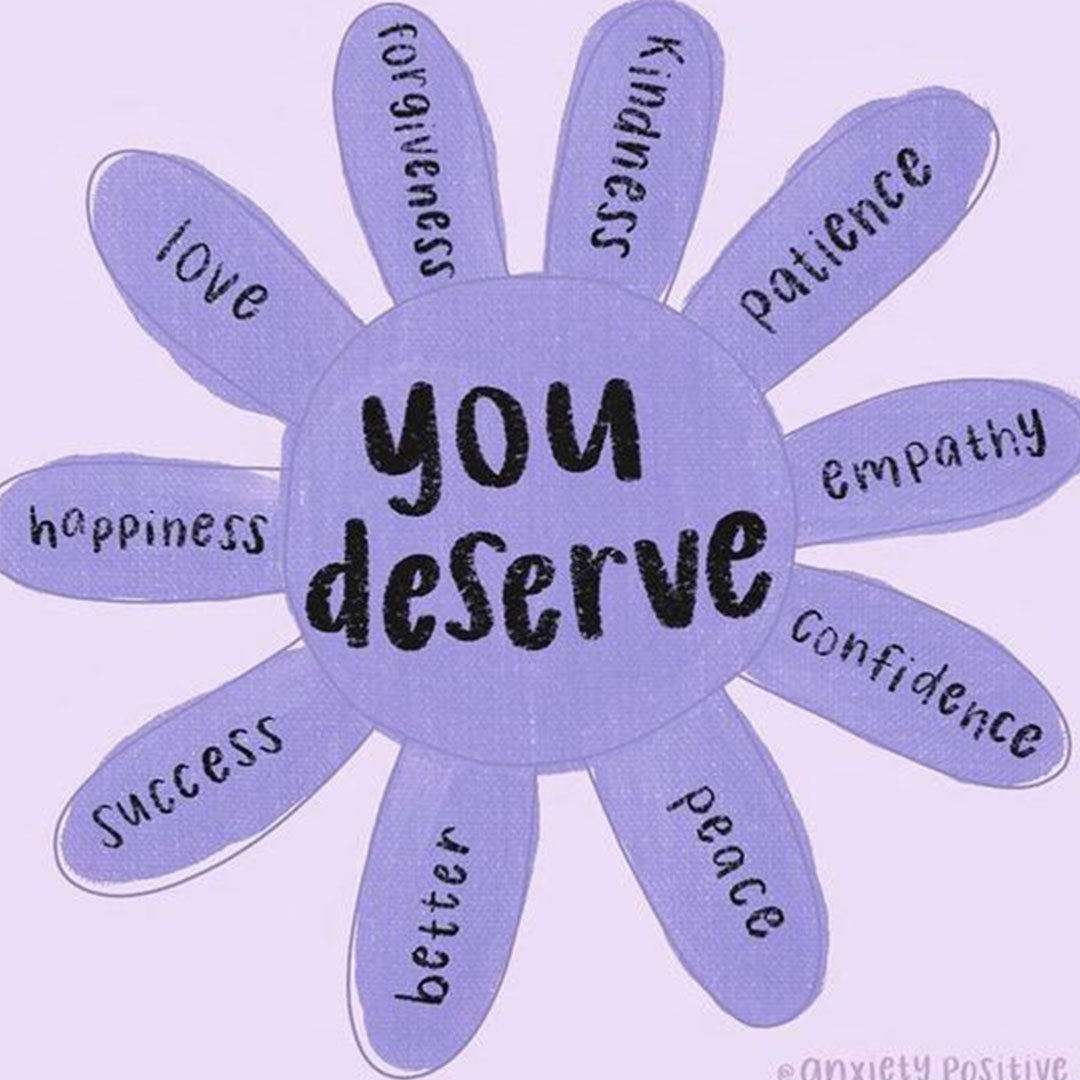 you
deserve
forgiveness
Kindness
patience
empathy
confidence
peace
better
success
happiness
love
@anxiety Positive